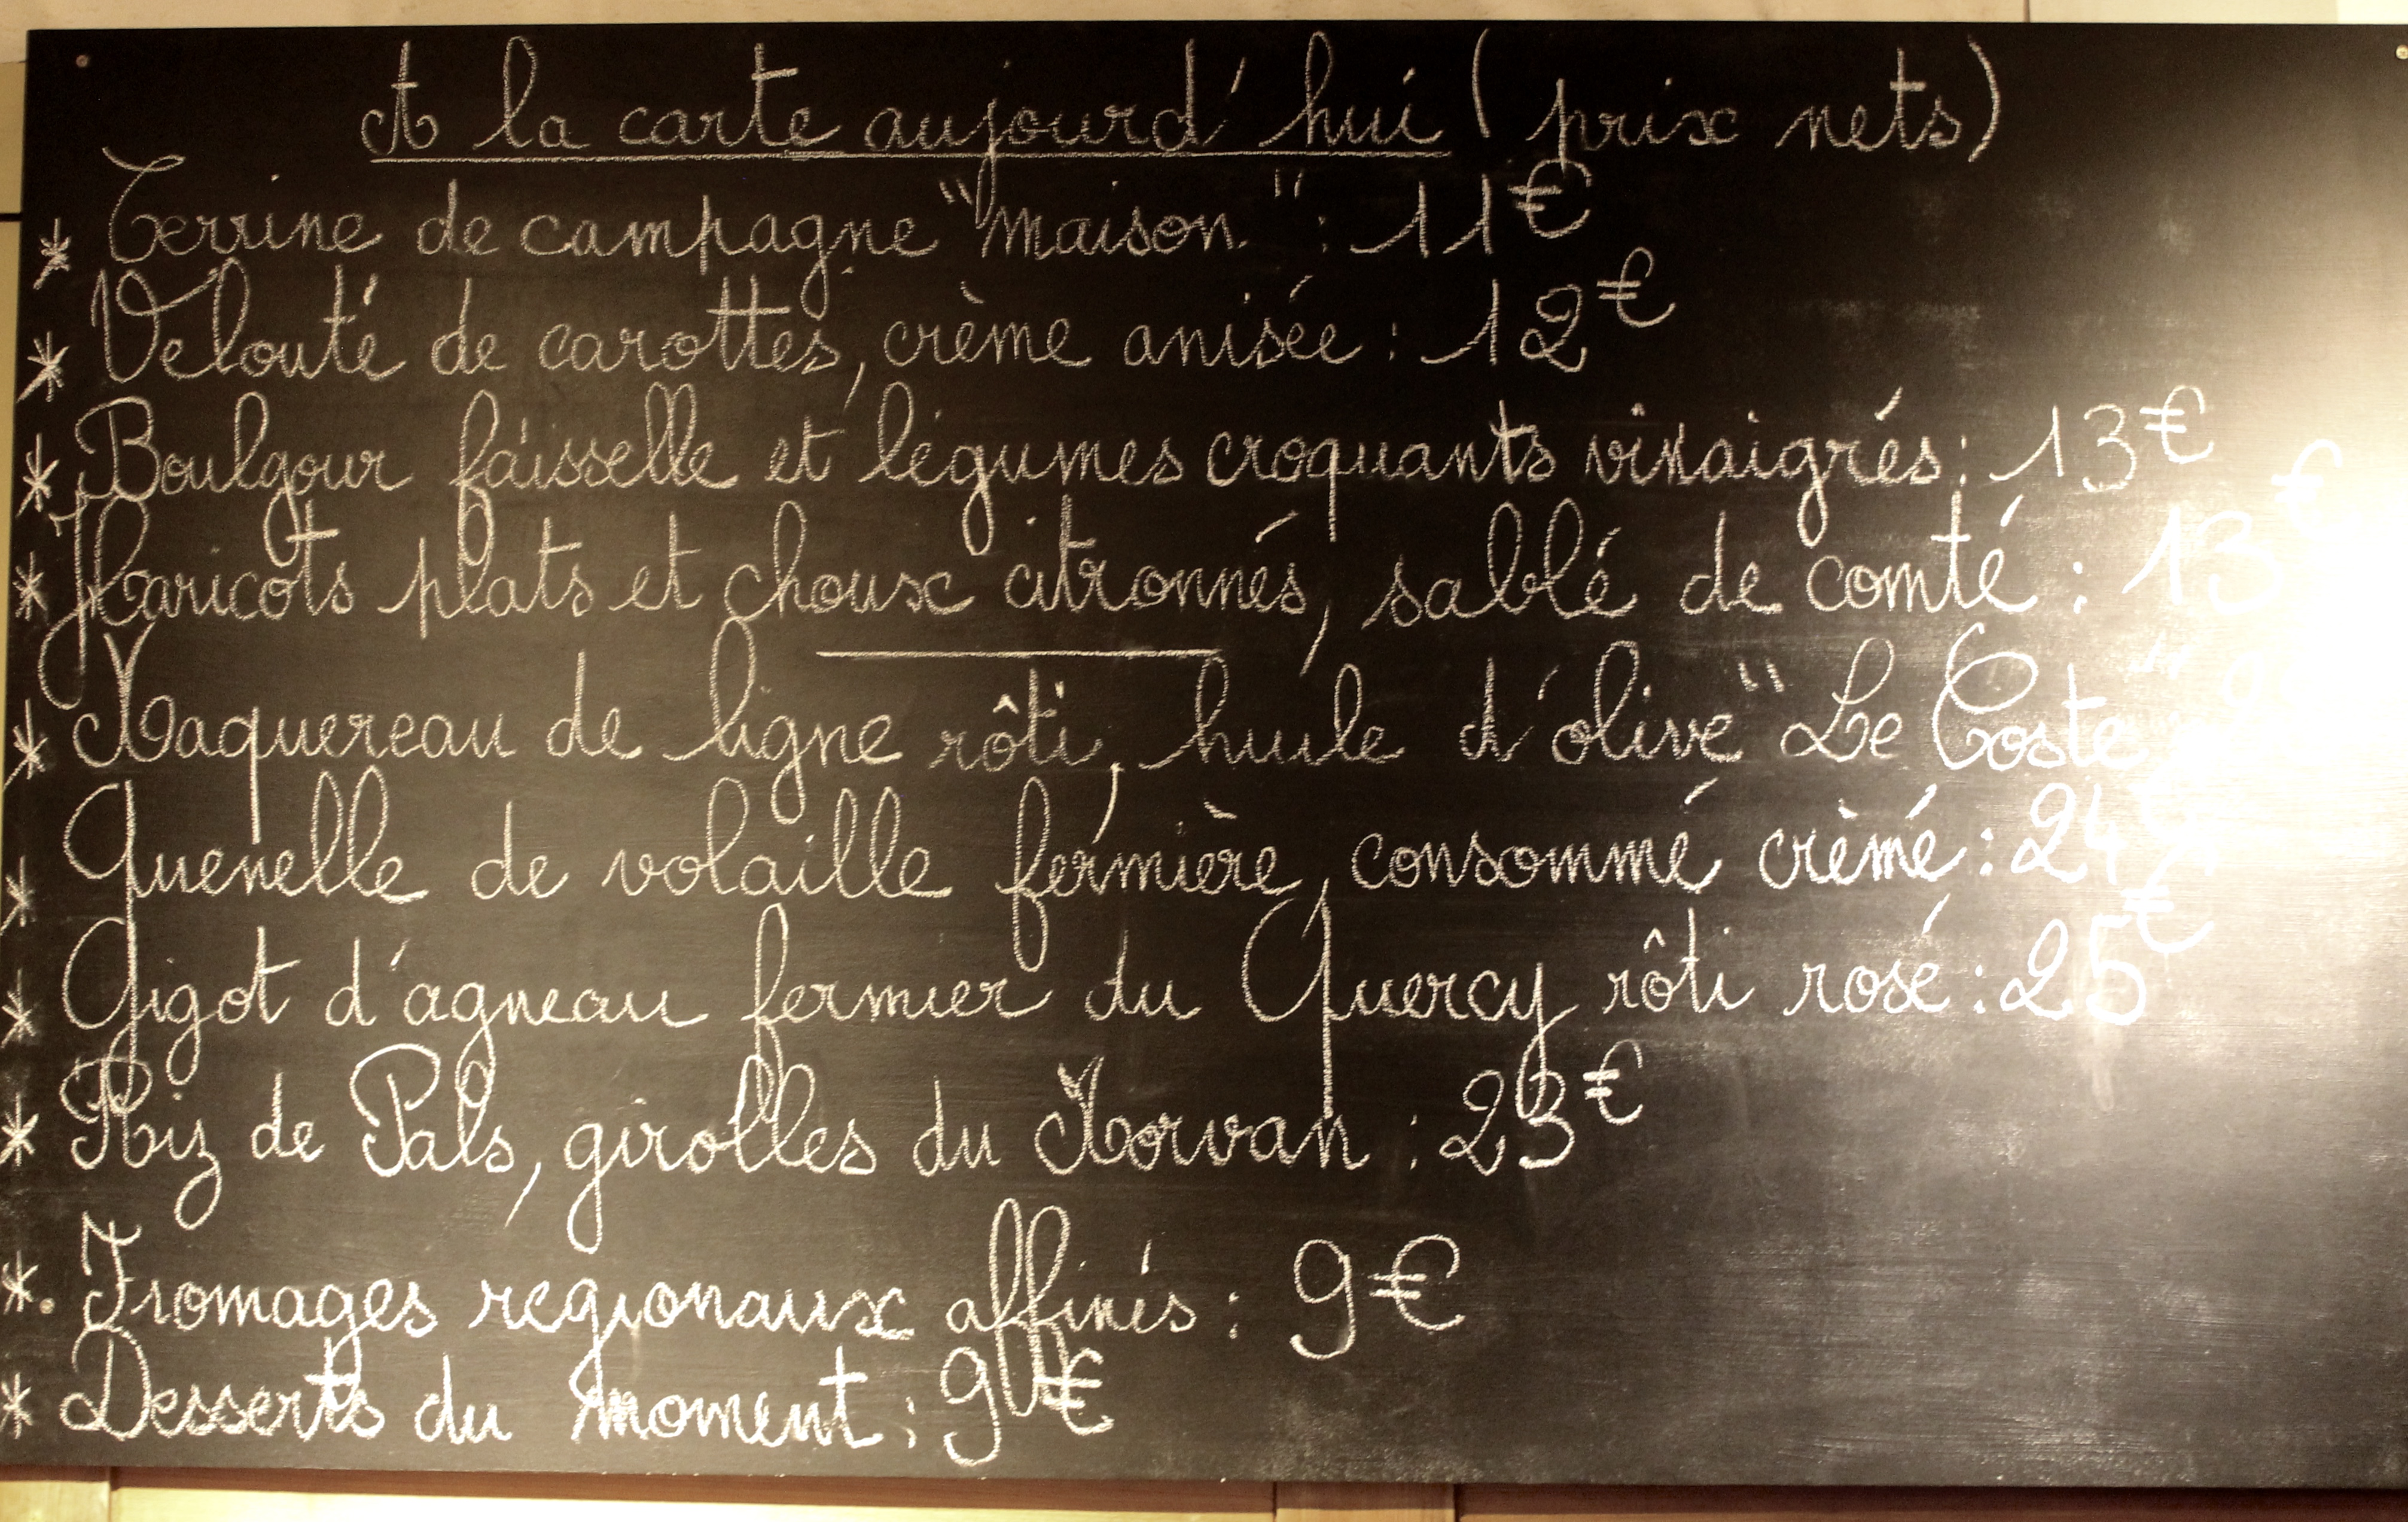 A la carte aujourd'hui (prix nets)
* Terrine de campagne "maison" : 11€
* Velouté de carottes, crème anisée : 12€
* Boulgour faisselle et légumes croquants vinaigrés : 13€
* Haricots plats et choux citronnés, sablé de comté : 13€
* Maquereau de ligne rôti, huile d'olive "Le Coste"
* Quenelle de volaille fermière, consommé crèmé : 24€
* Gigot d'agneau fermier du Quercy rôti rosé : 25€
* Riz de Pals, girolles du Morvan : 23€
* Fromages regionaux affinés : 9€
* Desserts du moment : 9€